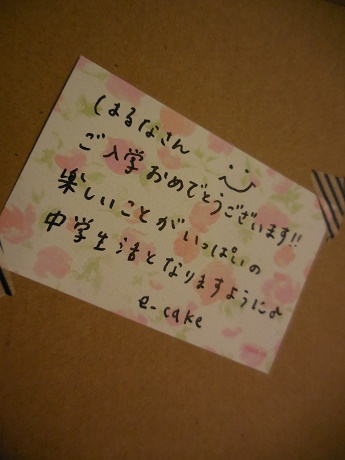 はるなさん
ご入学おめでとうございます!!
楽しいことがいっぱいの
中学生活となりますように♪
e-cake